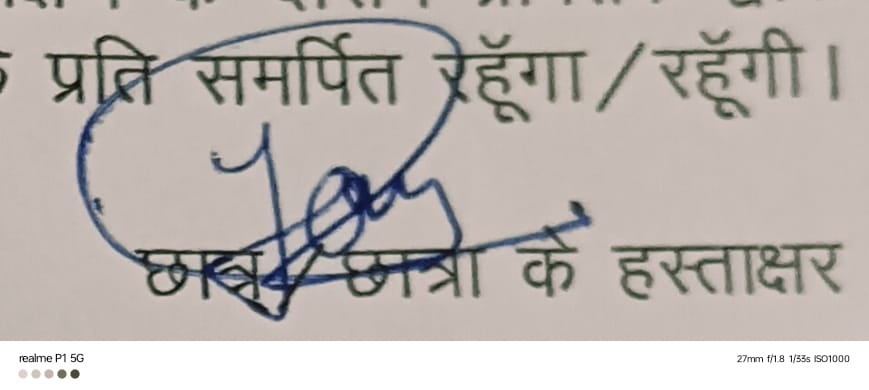 प्रति समर्पित रहूँगा / रहूँगी।
छात्र / छात्रा के हस्ताक्षर
realme P1 5G
27mm f/1.8 1/33s ISO1000